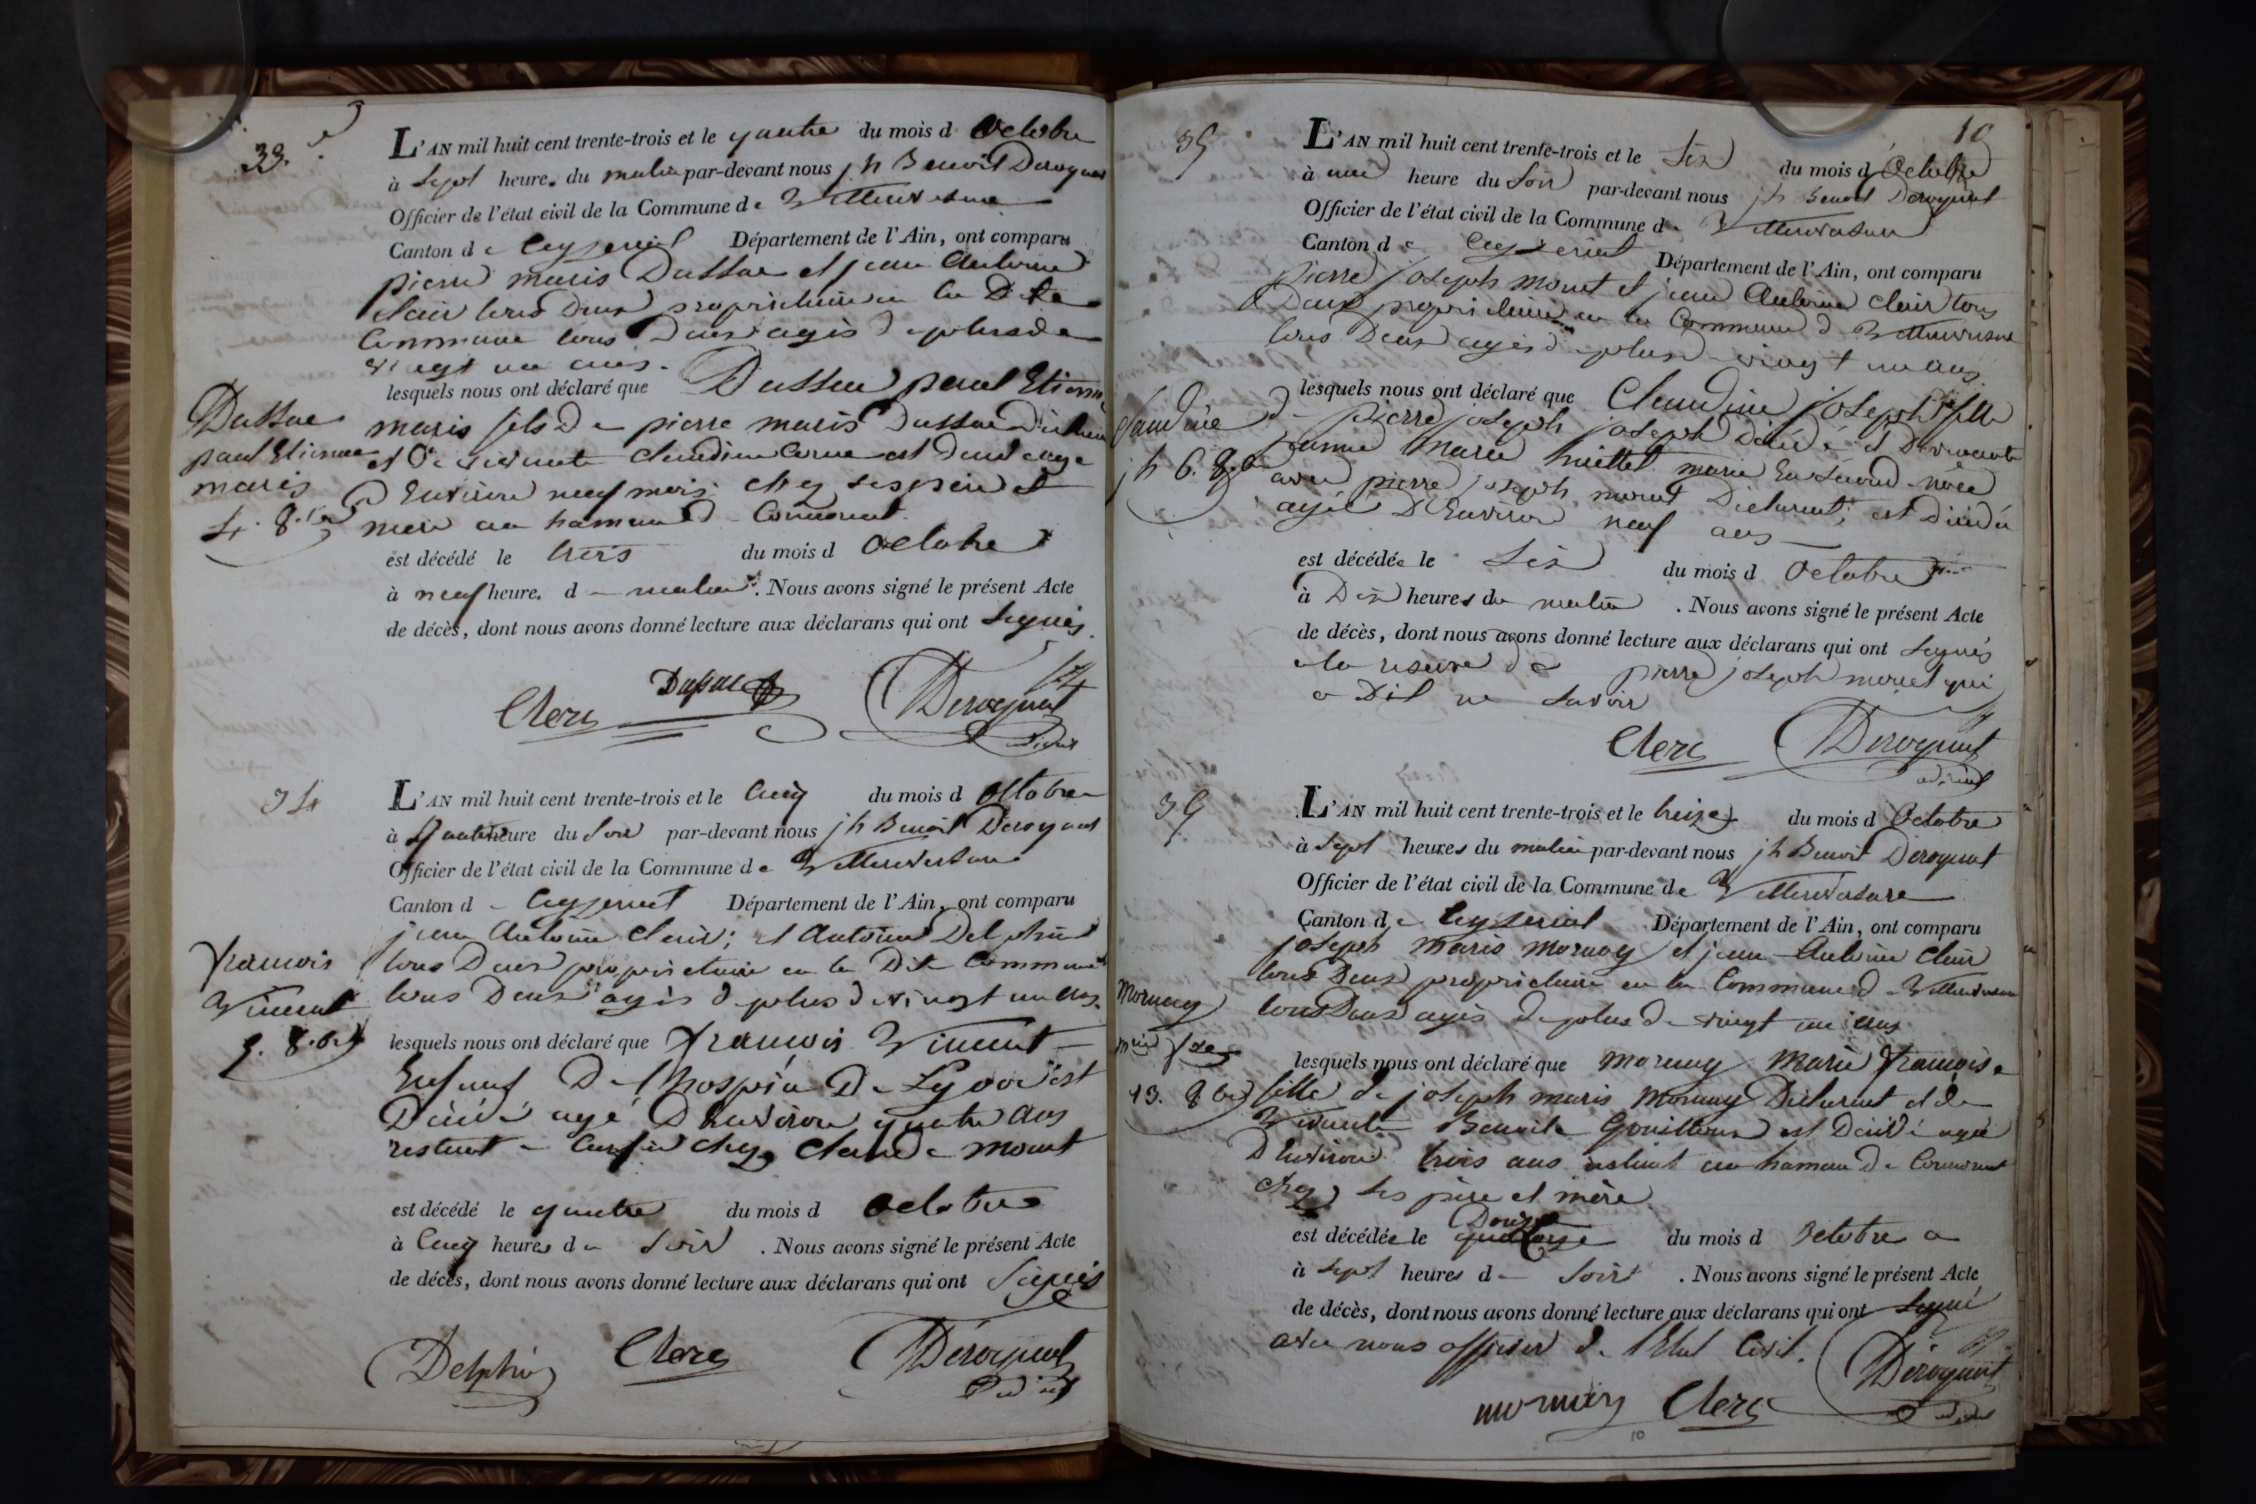 33.
L'AN mil huit cent trente-trois et le quatre du mois d Octobre
à Sept heures du matin par-devant nous jh Benoit Deroquat
Officier de l'état civil de la Commune de Villereversure
Canton de Ceyzeriat Département de l'Ain, ont comparu
pierre maris Dussue et jean Antoine
Clair tous Deux propriétaire en la Dite
Commune tous Deux agés de plus de
vingt un ans.
lesquels nous ont déclaré que Dussue paul Etienne
maris fils De pierre maris Dussue Diclarent
et De vivante Claudine Corne est Décédé age
D Environ neuf mois chez ses père et
mere au hameau d Conuorent
Dussue
paul Etienne
maris
4. 8.bre
est décédé le trois du mois d Octobre
à neuf heures du matin. Nous avons signé le présent Acte
de décès, dont nous avons donné lecture aux déclarans qui ont Signés.
Clerc Dussue Deroquat
adjoint
34
L'AN mil huit cent trente-trois et le Cinq du mois d Octobre
à quatre heure du Soir par-devant nous jh Benoit Deroquat
Officier de l'état civil de la Commune de Villereversure
Canton d Ceyzeriat Département de l'Ain, ont comparu
jean Antoine Clair; et Antoine Delphin
tous Deux propriétaire en la Dite Commune
tous Deux agés de plus de vingt un ans.
francois
Vincent
5. 8.bre
lesquels nous ont déclaré que francois Vincent
Enfant De l'hospice De Lyon est
Décédé agé D'environ quatre ans
restant chez Claude morel
est décédé le quatre du mois d Octobre
à Cinq heures du Soir. Nous avons signé le présent Acte
de décès, dont nous avons donné lecture aux déclarans qui ont Signés
Delphin Clerc Deroquat
adjoint
10
35
L'AN mil huit cent trente-trois et le Six du mois d Octobre
à une heure du Soir par-devant nous jh Benoit Deroquat
Officier de l'état civil de la Commune de Villereversure
Canton de Ceyzeriat Département de l'Ain, ont comparu
pierre joseph morel et jean Antoine Clair tous
Deux propriétaire en la Commune de Villereversure
tous Deux agés de plus de vingt un ans.
Claudine
jh 6. 8.bre
lesquels nous ont déclaré que Claudine joseph fille
de pierre joseph joseph Décédé et De vivante
jeanne Marie huittet marié En Second noce
avec pierre joseph morel Diclarent; est Décédée
agée D'Environ neuf ans
est décédée le Six du mois d Octobre
à Dix heures du matin. Nous avons signé le présent Acte
de décès, dont nous avons donné lecture aux déclarans qui ont Signés
a la reserve de pierre joseph morel qui
a Dit ne Savoir
Clerc Deroquat
adjoint
L'AN mil huit cent trente-trois et le treize du mois d Octobre
à Sept heures du matin par-devant nous jh Benoit Deroquat
Officier de l'état civil de la Commune de Villereversure
Canton de Ceyzeriat Département de l'Ain, ont comparu
joseph maris mornay et jean Antoine Clair
tous Deux propriétaire en la Commune de Villereversure
tous Deux agés de plus de vingt un ans.
mornay
mrie fse
13. 8.bre
lesquels nous ont déclaré que mornay Marie françoise
fille de joseph maris mornay Diclarent et de
Vivante Benoite Gouilloux est Décédé agée
D'Environ trois ans restant au hameau de Conuorent
chez ses père et mère
Douze
est décédée le quatorze du mois d Octobre a
à Sept heures du Soir. Nous avons signé le présent Acte
de décès, dont nous avons donné lecture aux déclarans qui ont Signé
avec nous officier de l'Etat Civil.
mornay Clerc Deroquat
adjoint
10